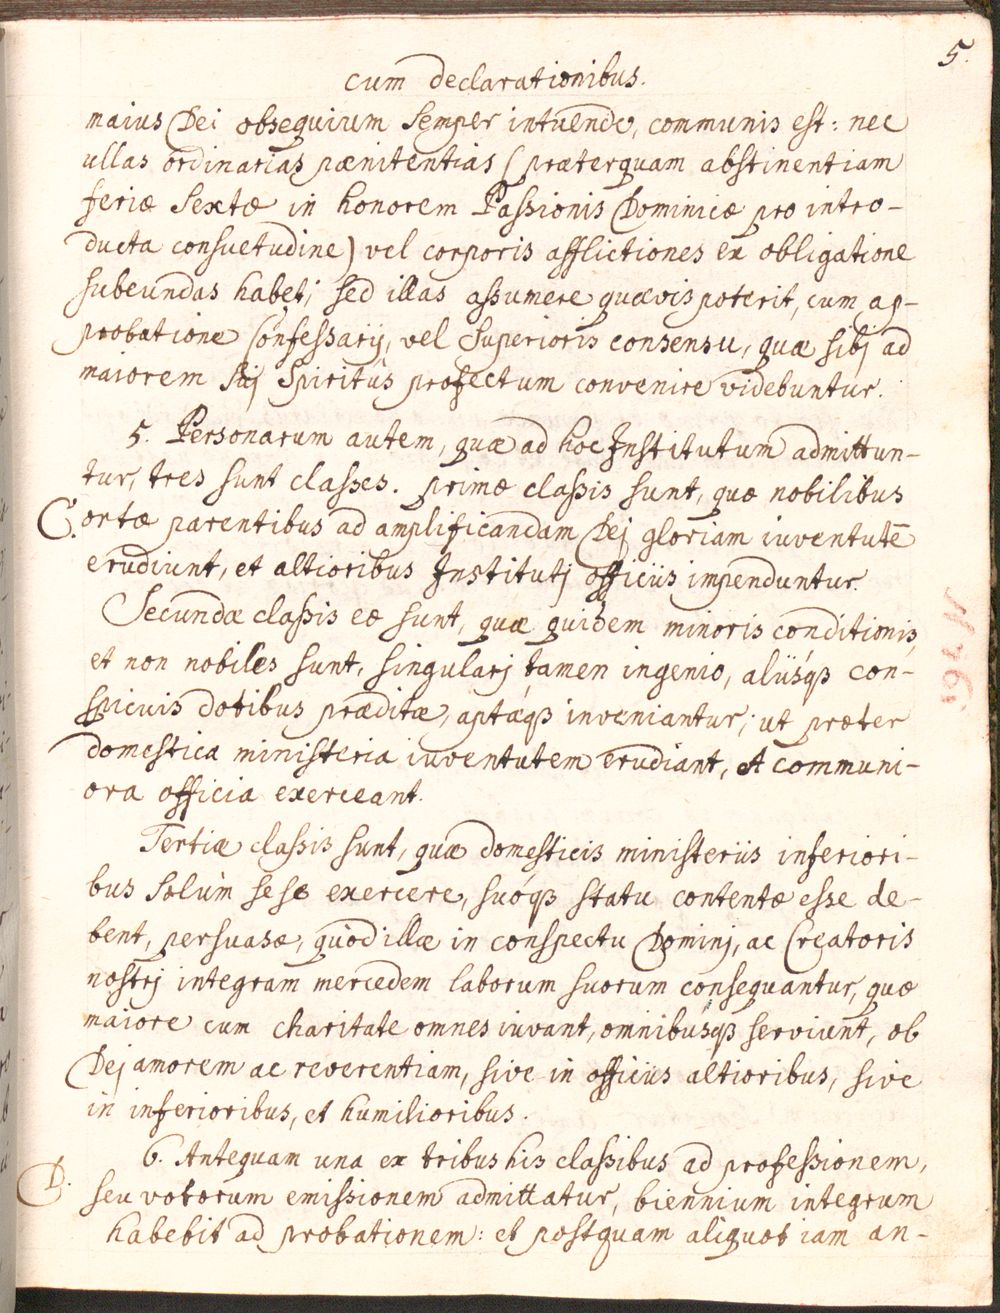 5.
cum declarationibus.
maius Dei obsequium semper intuendo, communis est: nec
ullas ordinarias pænitentias (præterquam abstinentiam
feriæ sextæ in honorem Passionis Dominicæ pro intro-
ducta consuetudine) vel corporis afflictiones ex obligatione
subeundas habet; sed illas assumere quævis poterit, cum ap-
probatione Confessarij, vel Superioris consensu, quæ sibj ad
maiorem suj Spiritûs profectum convenire videbuntur.
5. Personarum autem, quæ ad hoc Institutum admittun-
tur, tres sunt classes. primæ classis sunt, quæ nobilibus
C. ortæ parentibus ad amplificandam Dej gloriam iuventutē
erudiunt, et altioribus Institutj officiis impenduntur.
Secundæ classis eæ sunt, quæ quidem minoris conditionis,
et non nobiles sunt, singularj tamen ingenio, aliisq́ꝫ con-
spicuis dotibus præditæ, aptæq́ꝫ inveniantur; ut præter
domestica ministeria iuventutem erudiant, et communi-
ora officia exerceant.
Tertiæ classis sunt, quæ domesticis ministeriis inferiori-
bus solùm sese exercere, suóqꝫ statu contentæ esse de-
bent, persuasæ, quòd illæ in conspectu Dominj, ac Creatoris
nostrj integram mercedem laborum suorum consequantur, quæ
maiore cum charitate omnes iuvant, omnibúsqꝫ serviunt, ob
Dej amorem ac reverentiam, sive in officiis altioribus, sive
in inferioribus, et humilioribus.
6. Antequam una ex tribus his classibus ad professionem,
D. seu votorum emissionem admittatur, biennium integrum
habebit ad probationem: et postquam aliquot iam an-